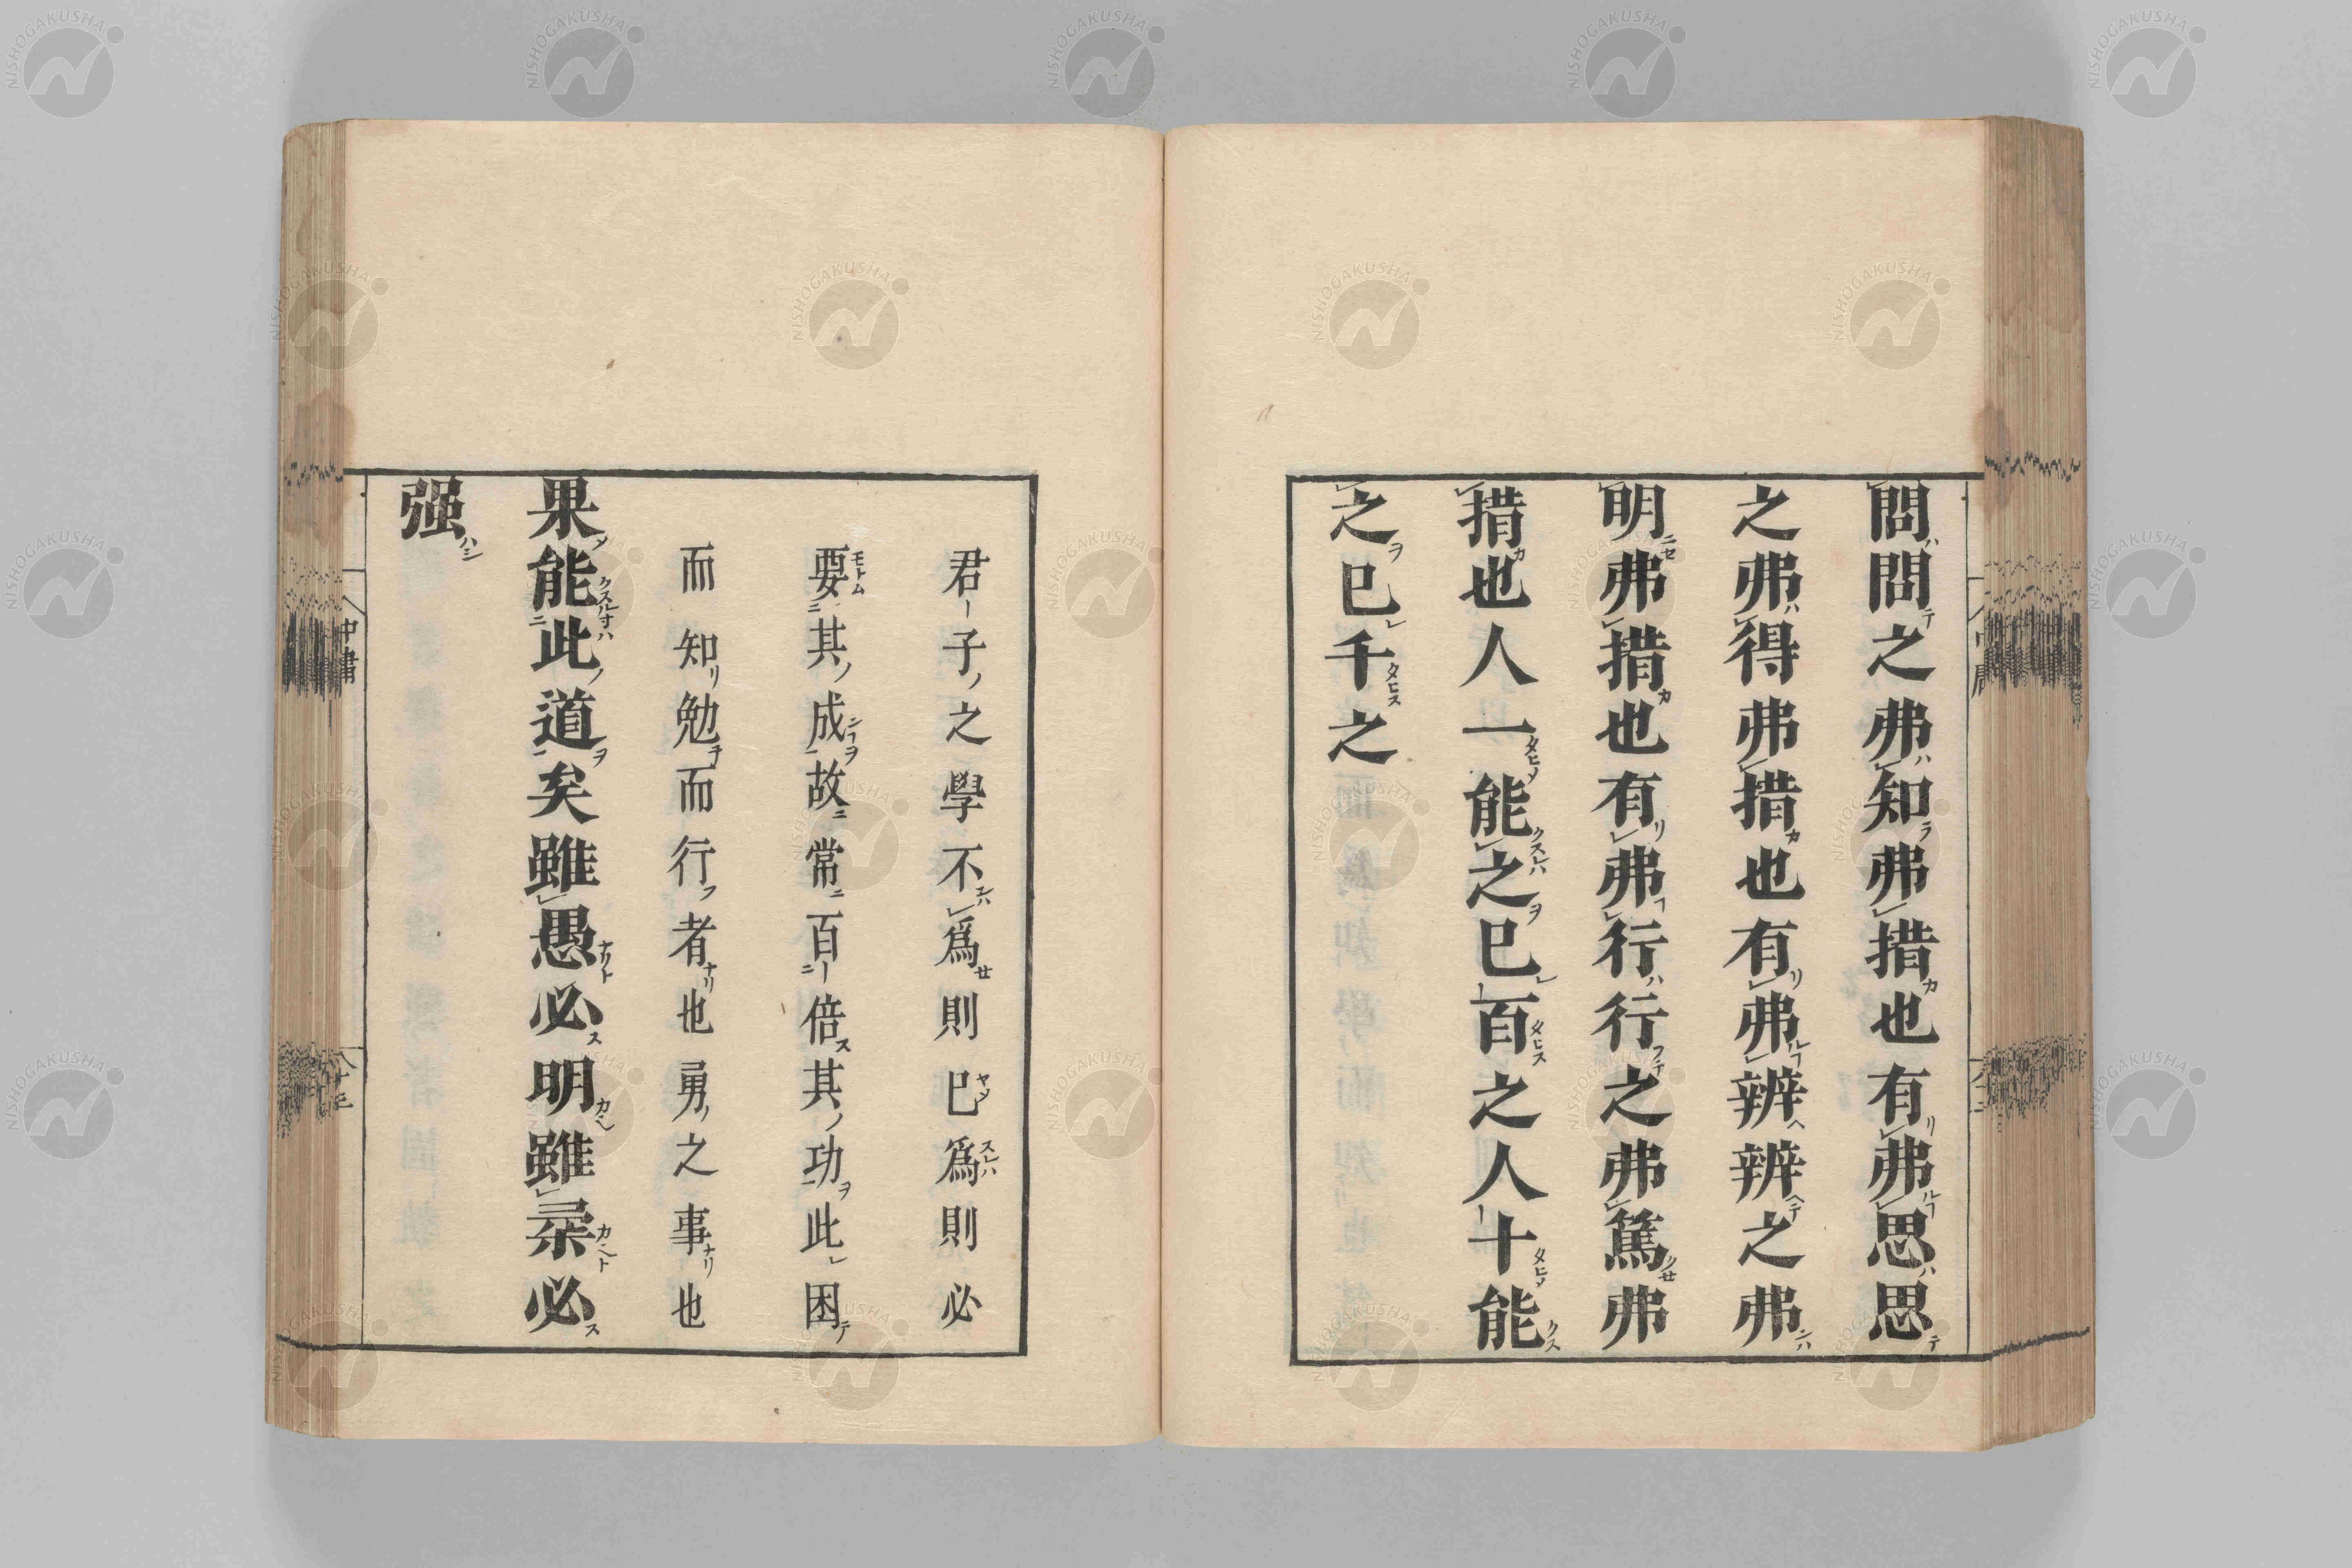 問問之弗知弗措也有弗思思
之弗得弗措也有弗辨辨之弗
明弗措也有弗行行之弗篤弗
措也人一能之已百之人十能
之已千之
君子之學不爲則已爲則必
要其成故常百倍其功此困
而知勉而行者也勇之事也
果能此道矣雖愚必明雖柔必
强
中庸
NISHOGAKUSHA